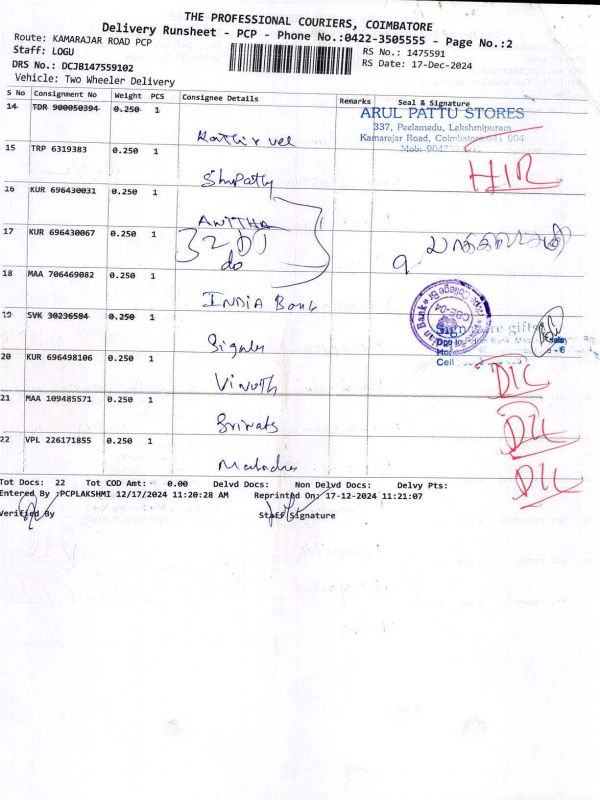 THE PROFESSIONAL COURIERS, COIMBATORE
Delivery Runsheet - PCP - Phone No.:0422-3505555 - Page No.:2
Route: KAMARAJAR ROAD PCP
RS No.: 1475591
Staff: LOGU
RS Date: 17-Dec-2024
DRS No.: DCJB147559102
Vehicle: Two Wheeler Delivery
S No Consignment No Weight PCS Consignee Details Remarks Seal & Signature
14 TDR 900050394 0.250 1
Kathirvel
ARUL PATTU STORES
337, Peelamedu, Lakshmipuram,
Kamarajar Road, Coimbatore-641 004
15 TRP 6319383 0.250 1
16 KUR 696430031 0.250 1
ANITHA
17 KUR 696430067 0.250 1
do
18 MAA 706469082 0.250 1
INDIA Bank
19 SVK 30236584 0.250 1
Signature gifts
Cell :
20 KUR 696498106 0.250 1
Vinoth
DLC
21 MAA 109485571 0.250 1
Srivats
DLC
22 VPL 226171855 0.250 1
DLC
Tot Docs: 22 Tot COD Amt: 0.00 Delvd Docs: Non Delvd Docs: Delvy Pts:
Entered By :PCPLAKSHMI 12/17/2024 11:20:28 AM Reprinted On: 17-12-2024 11:21:07
Verified By Staff Signature